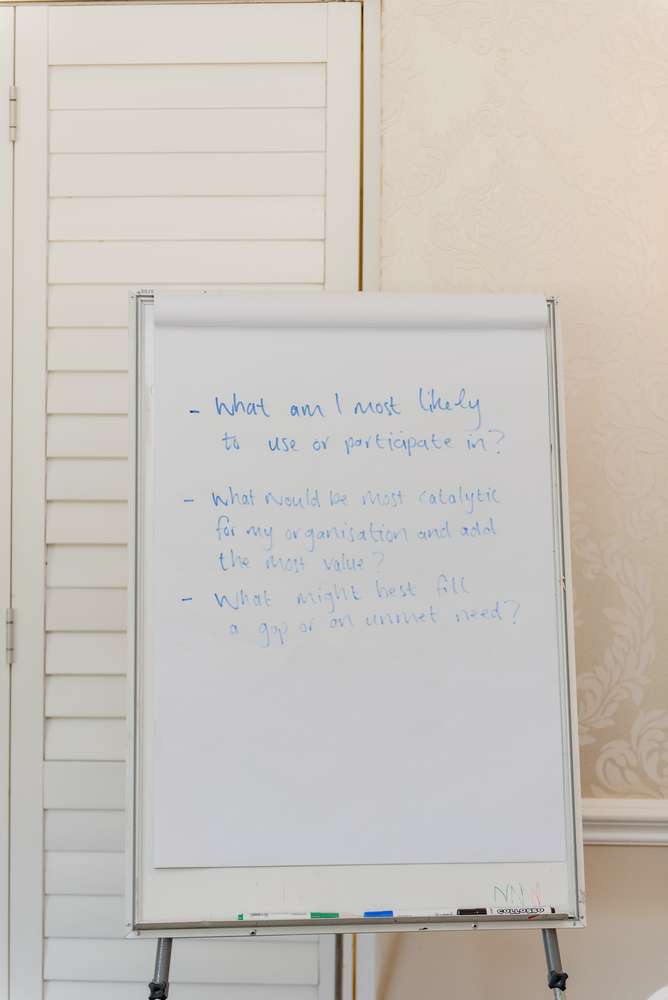 - What am I most likely
to use or participate in?
- What would be most catalytic
for my organisation and add
the most value?
- What might best fill
a gap or an unmet need?
NNN
COLLOSSO